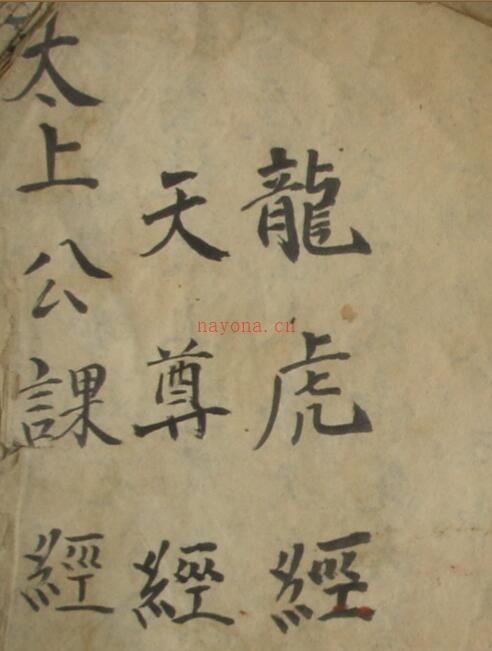 龍虎經
天尊經
太上公課經
nayona.cn